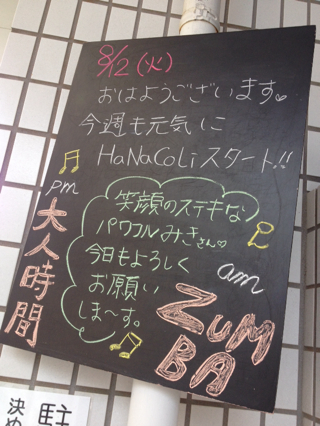 8/12(火)
おはようございます♡
今週も元気に
HaNaCoLiスタート!!
pm
大人時間
笑顔のステキな
パワフルみきさん♡
今日もよろしく
お願い
しま〜す。
am
ZUMBA
決め
駐